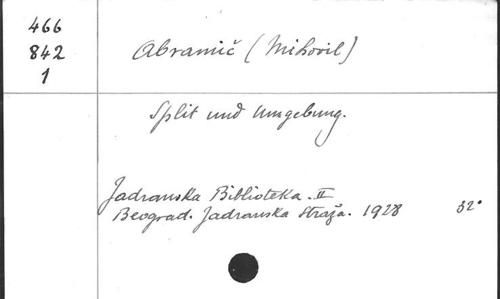 466
842
1
Abramić (Mihovil)
Split und Umgebung.
Jadranska Biblioteka. II
Beograd. Jadranska Straža. 1928 32°